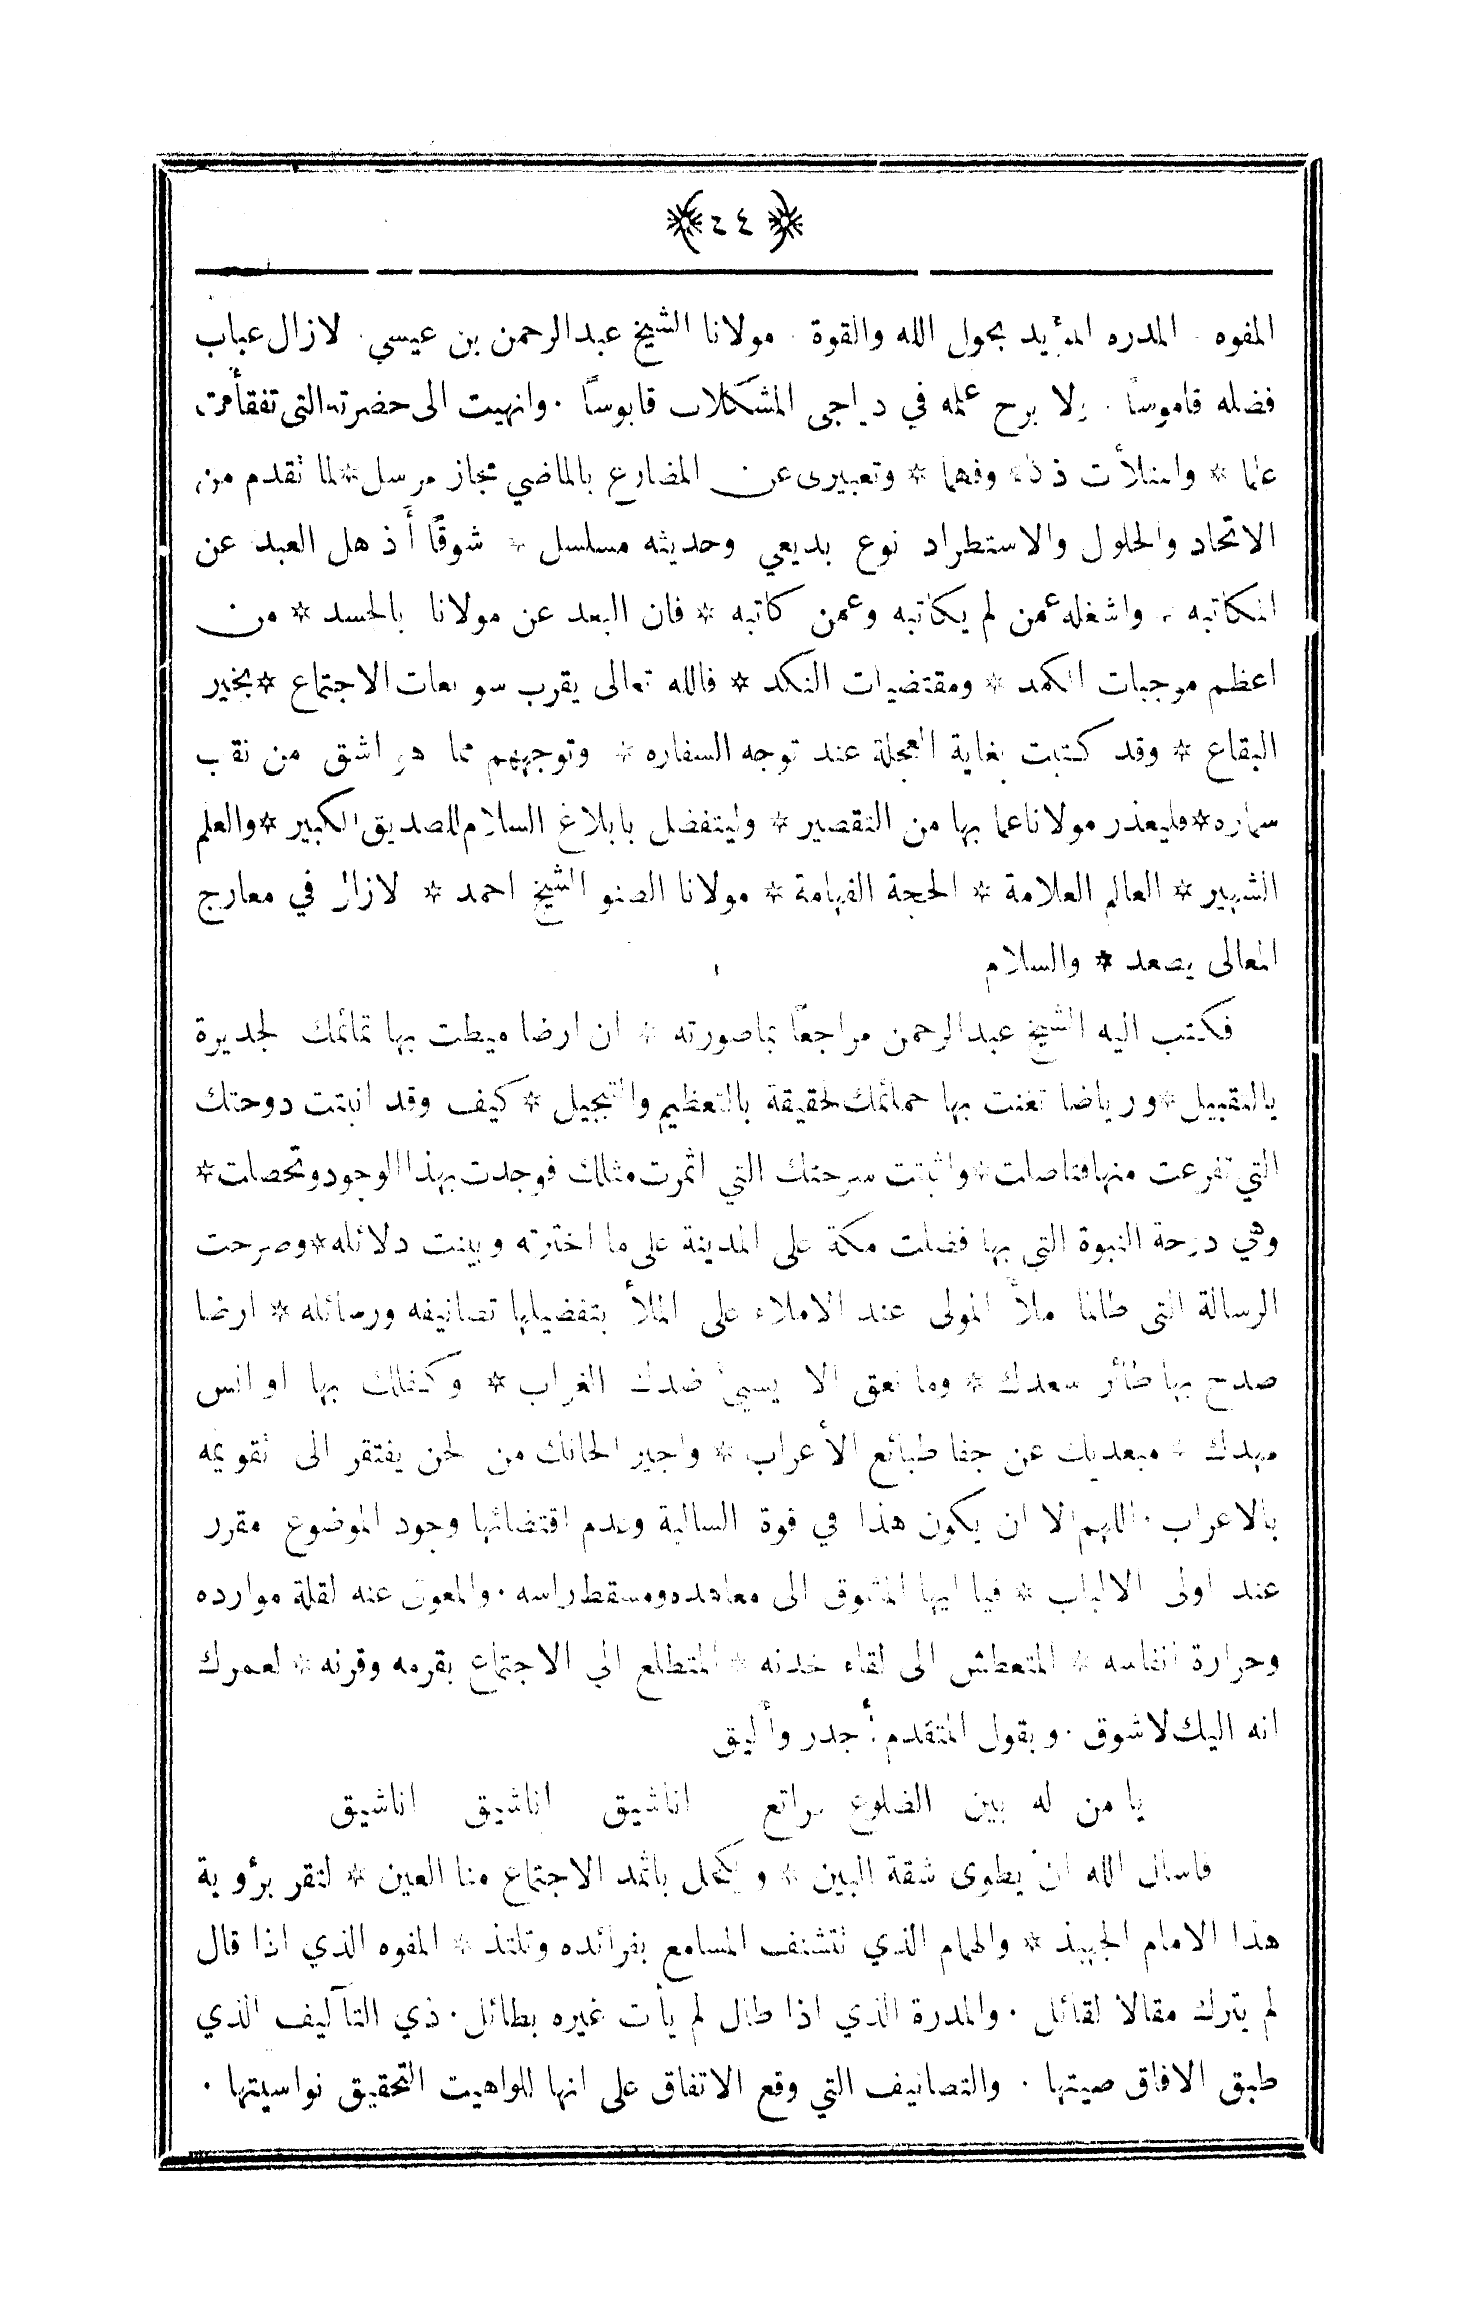 ﴿٢٤﴾
المفوه . المدره المؤيد بحول الله والقوة . مولانا الشيخ عبد الرحمن بن عيسي . لا زال عباب
فضله قاموساً . ولا برح علمه في دياجى المشكلات قابوساً . وانهيت الى حضرته التى تفقأت
علما * وامتلأت ذكاء وفهما * وتعبيرى عن المضارع بالماضي مجاز مرسل * لما تقدم من
الاتحاد والحلول والاستطراد نوع بديعي وحديثه مسلسل * شوقاً أذهل العبد عن
المكاتبه . واشغله عمن لم يكاتبه وعمن كاتبه * فان البعد عن مولانا بالجسد * من
اعظم موجبات الكمد * ومقتضيات النكد * فالله تعالى يقرب سويعات الاجتماع * بخير
البقاع * وقد كتبت بغاية العجلة عند توجه السفاره * وتوجههم مما هو اشق من نقب
سماره * فليعذر مولانا عما بها من التقصير * وليتفضل بابلاغ السلام للصديق الكبير * والعلم
الشهير * العالم العلامة * الحجة الفهامة * مولانا الصنو الشيخ احمد * لا زال في معارج
المعالى يصعد * والسلام
فكتب اليه الشيخ عبد الرحمن مراجعاً بما صورته * ان ارضا ميطت بها تمائمك لجديرة
بالتقبيل * ورياضا تغنت بها حمائمك لحقيقة بالتعظيم والتبجيل * كيف وقد انبتت دوحتك
التي تفرعت منها فتاصلت * واثبتت سرحتك التي اثمرت مثلك فوجدت بهذا الوجود وتحصلت *
وهي درحة النبوة التي بها فضلت مكة على المدينة على ما اخترته وبينت دلائله * وصرحت
الرسالة التى طالما ملأ المولى عند الاملاء على الملأ بتفضيلها تصانيفه ورسائله * ارضا
صدح بها طائر سعدك * وما نعق الا يسيئ ضدك الغراب * وكفلك بها اوانس
مهدك * مبعديك عن جفا طبائع الأعراب * واجير الحانك من لحن يفتقر الى تقويمه
بالاعراب . اللهم الا ان يكون هذا في قوة السالبة وعدم اقتضائها وجود الموضوع مقرر
عند اولى الالباب * فيا ايها المتشوق الى معاهده ومسقط راسه . والمعوق عنه لقلة موارده
وحرارة انفاسه * المتعطش الى لقاء خدنه * المتطلع الي الاجتماع بقرمه وقرنه * لعمرك
انه اليك لاشوق . وبقول المتقدم أجدر وأليق
يا من له بين الضلوع مراتع اناشيق اناشيق اناشيق
فاسال الله ان يطوى شقة البين * ويكحل باثمد الاجتماع منا العين * لتقر برؤية
هذا الامام الجهبذ * والهمام الذي تتشنف المسامع بفرائده وتلتذ * المفوه الذي اذا قال
لم يترك مقالا لقائل . والمدرة الذي اذا طال لم يأت غيره بطائل . ذي التآليف الذي
طبق الافاق صيتها . والتصانيف التي وقع الاتفاق على انها للواهيت التحقيق نواسيتها .